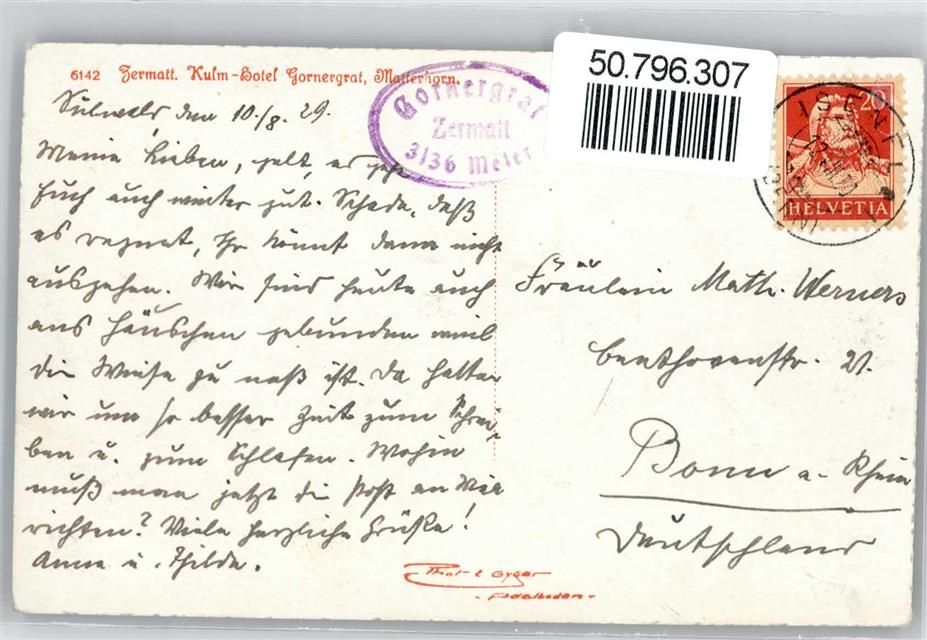 6142 Zermatt. Kulm-Hotel Gornergrat, Matterhorn.
Gornergrat
Zermatt
3136 Meter
50.796.307
20
HELVETIA
den 10./8. 29.
Meine Lieben, gelt, es geht
Euch auch wieder gut. Schade, daß
es regnet, Ihr könnt dann nicht
ausgehen. Wir sind heute auch
ans Häuschen gebunden weil
die Wiese zu naß ist. Da hatten
wir um so besser Zeit zum Schrei-
ben u. zum Schlafen. Wohin
muß man jetzt die Post an
richten? Viele herzliche Grüße!
Anna u. Thilda.
Fräulein Math. Werners
Beethovenstr. 21.
Bonn a. Rhein
Deutschland
Phot. E. Gyger
- Adelboden -